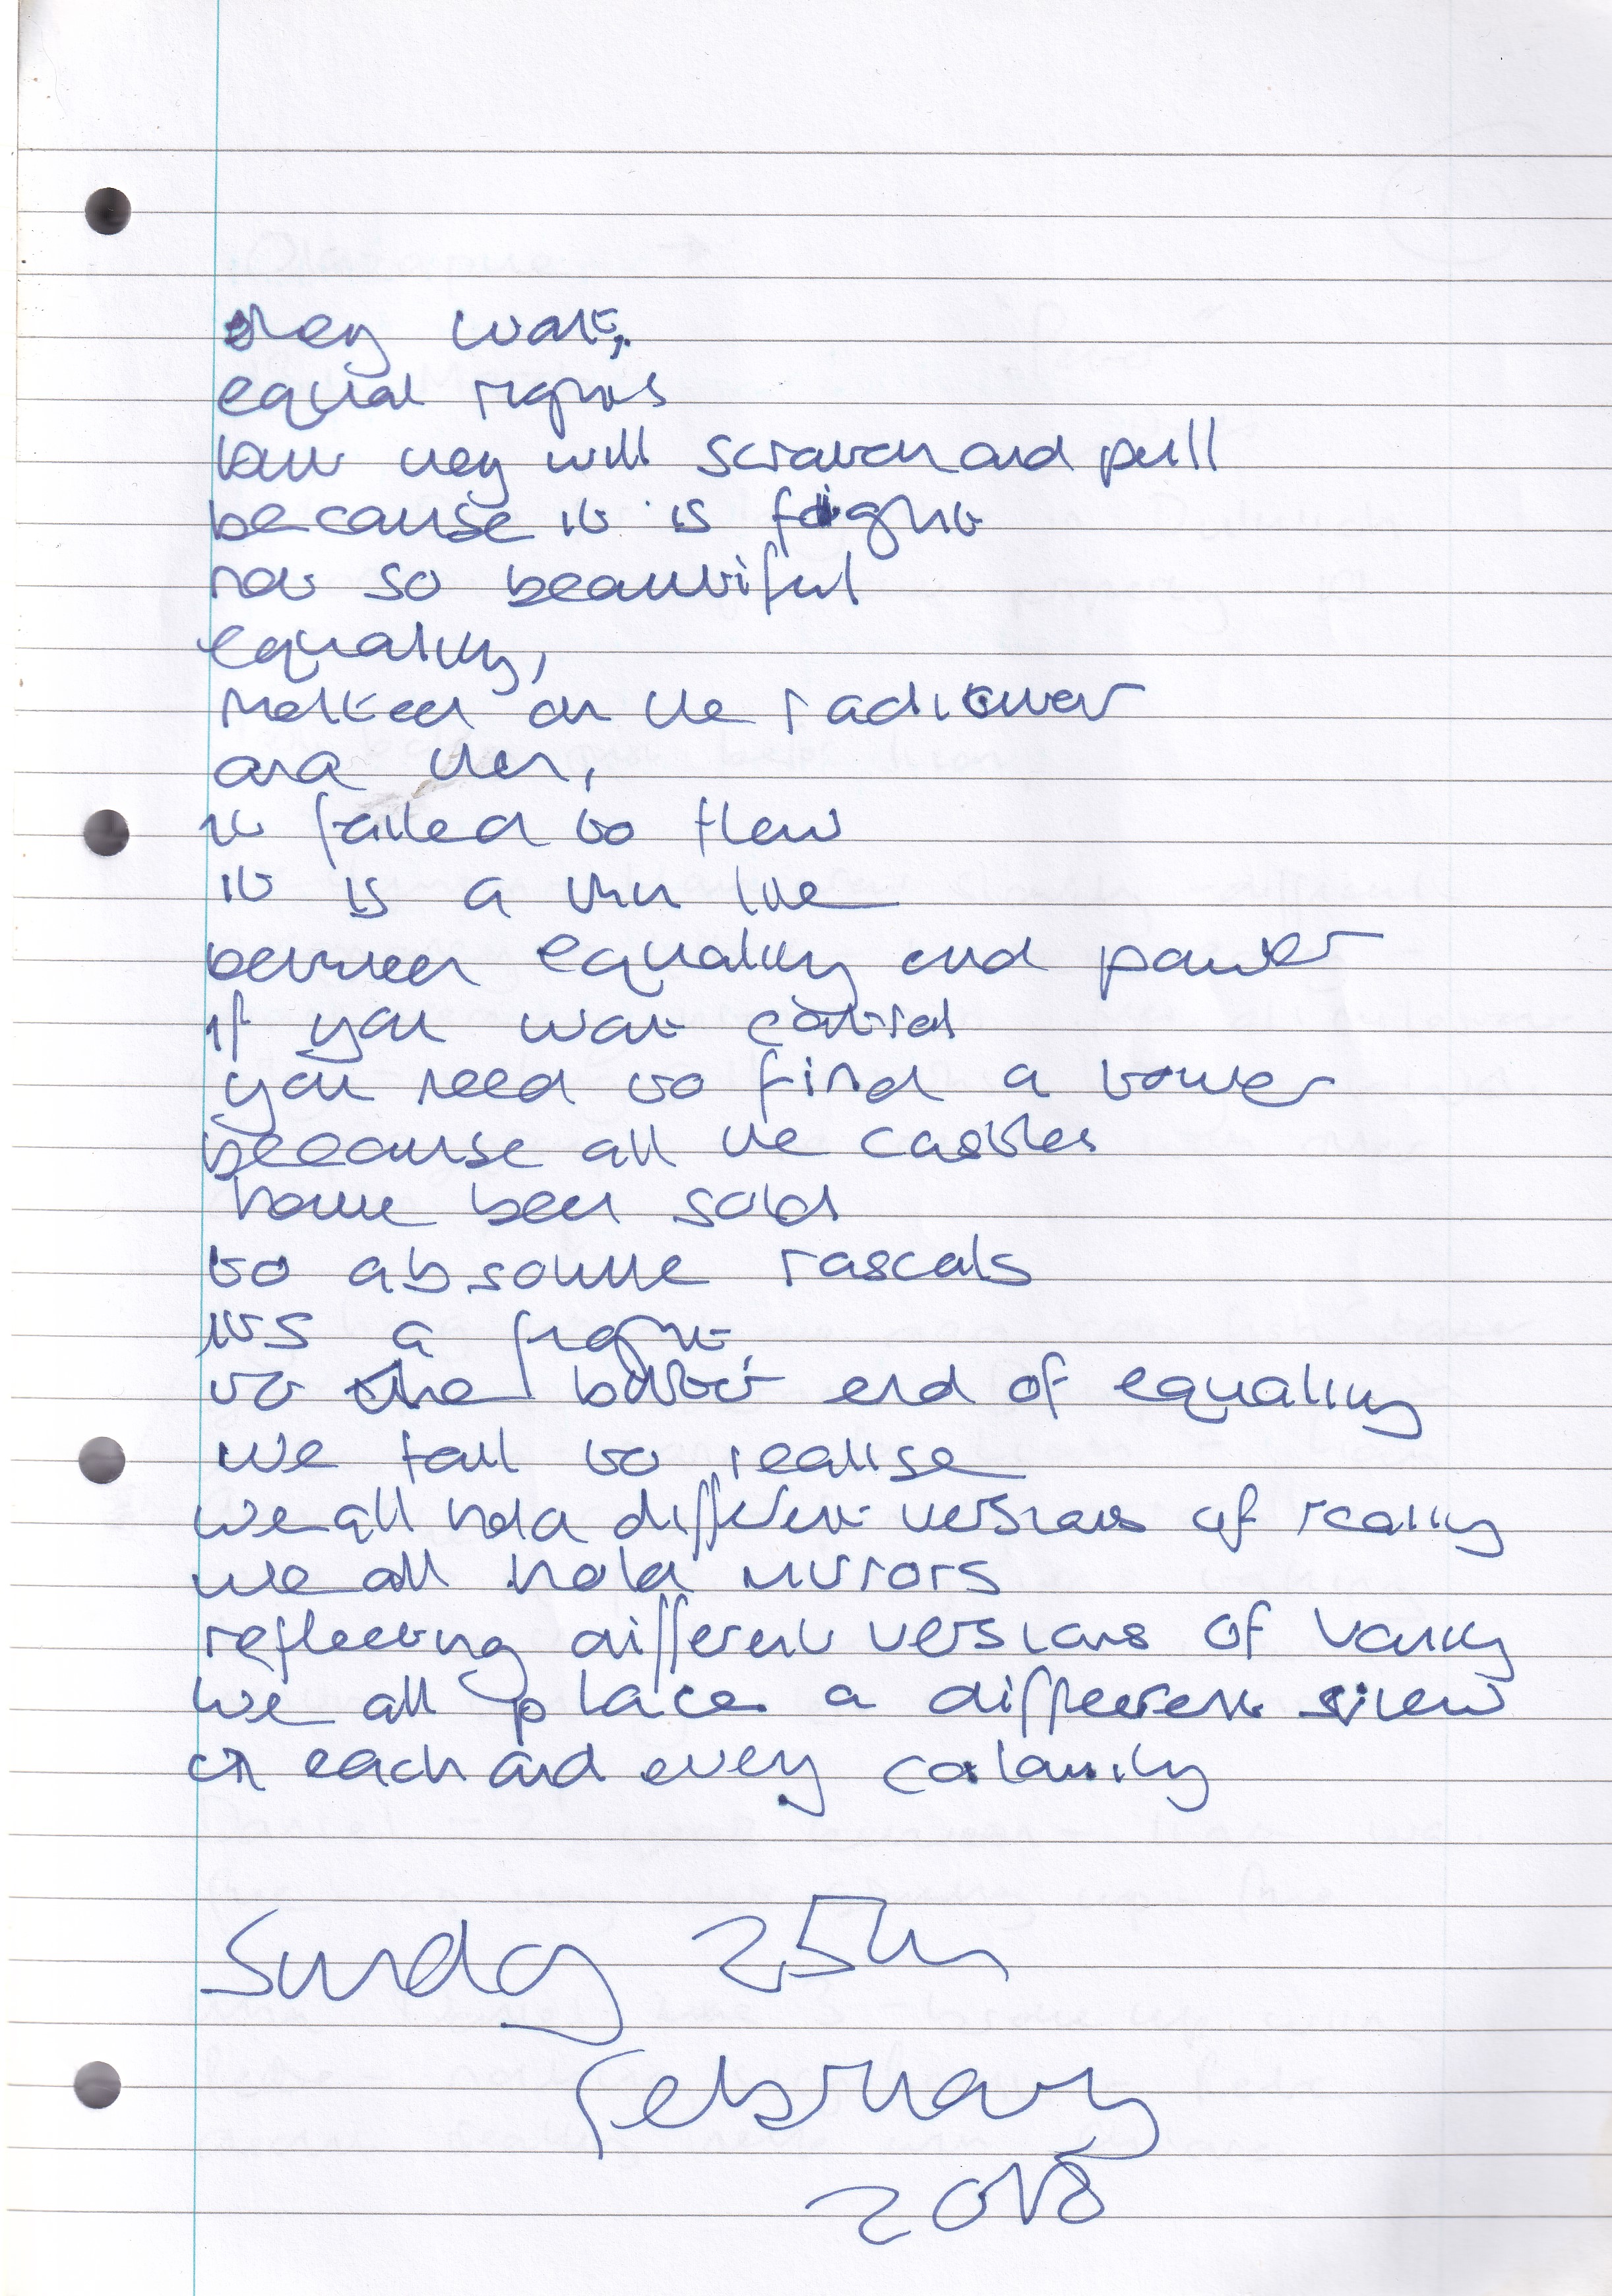 they want,
equal rights
but they will scratch and pull
because it is fight
not so beautiful
equality,
melted on the radiator
and then,
it failed to flow
it is a thin line
between equality and power
if you want control
you need to find a tower
because all the castles
have been sold
to absolute rascals
its a fight,
to the bitter end of equality
we fail to realise
we all hold different versions of reality
we all hold mirrors
reflecting different versions of vanity
we all place a different view
on each and every calamity
Sunday 25th
February
2018